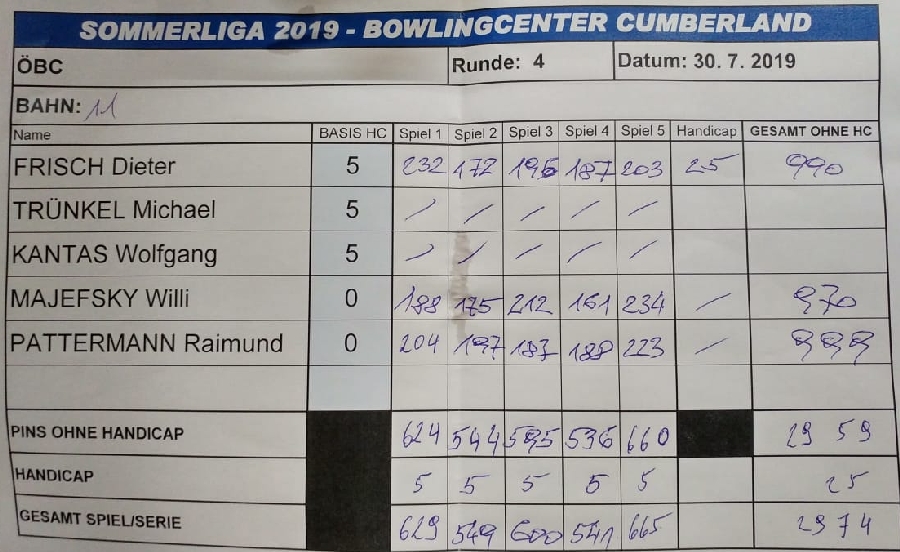 SOMMERLIGA 2019 - BOWLINGCENTER CUMBERLAND
ÖBC Runde: 4 Datum: 30. 7. 2019
BAHN: 11
Name BASIS HC Spiel 1 Spiel 2 Spiel 3 Spiel 4 Spiel 5 Handicap GESAMT OHNE HC
FRISCH Dieter 5 232 172 196 187 203 25 990
TRÜNKEL Michael 5 / / / / /
KANTAS Wolfgang 5 / / / / /
MAJEFSKY Willi 0 188 175 212 161 234 / 970
PATTERMANN Raimund 0 204 197 187 188 223 / 999
PINS OHNE HANDICAP 624 544 595 536 660 2959
HANDICAP 5 5 5 5 5 25
GESAMT SPIEL/SERIE 629 549 600 541 665 2974